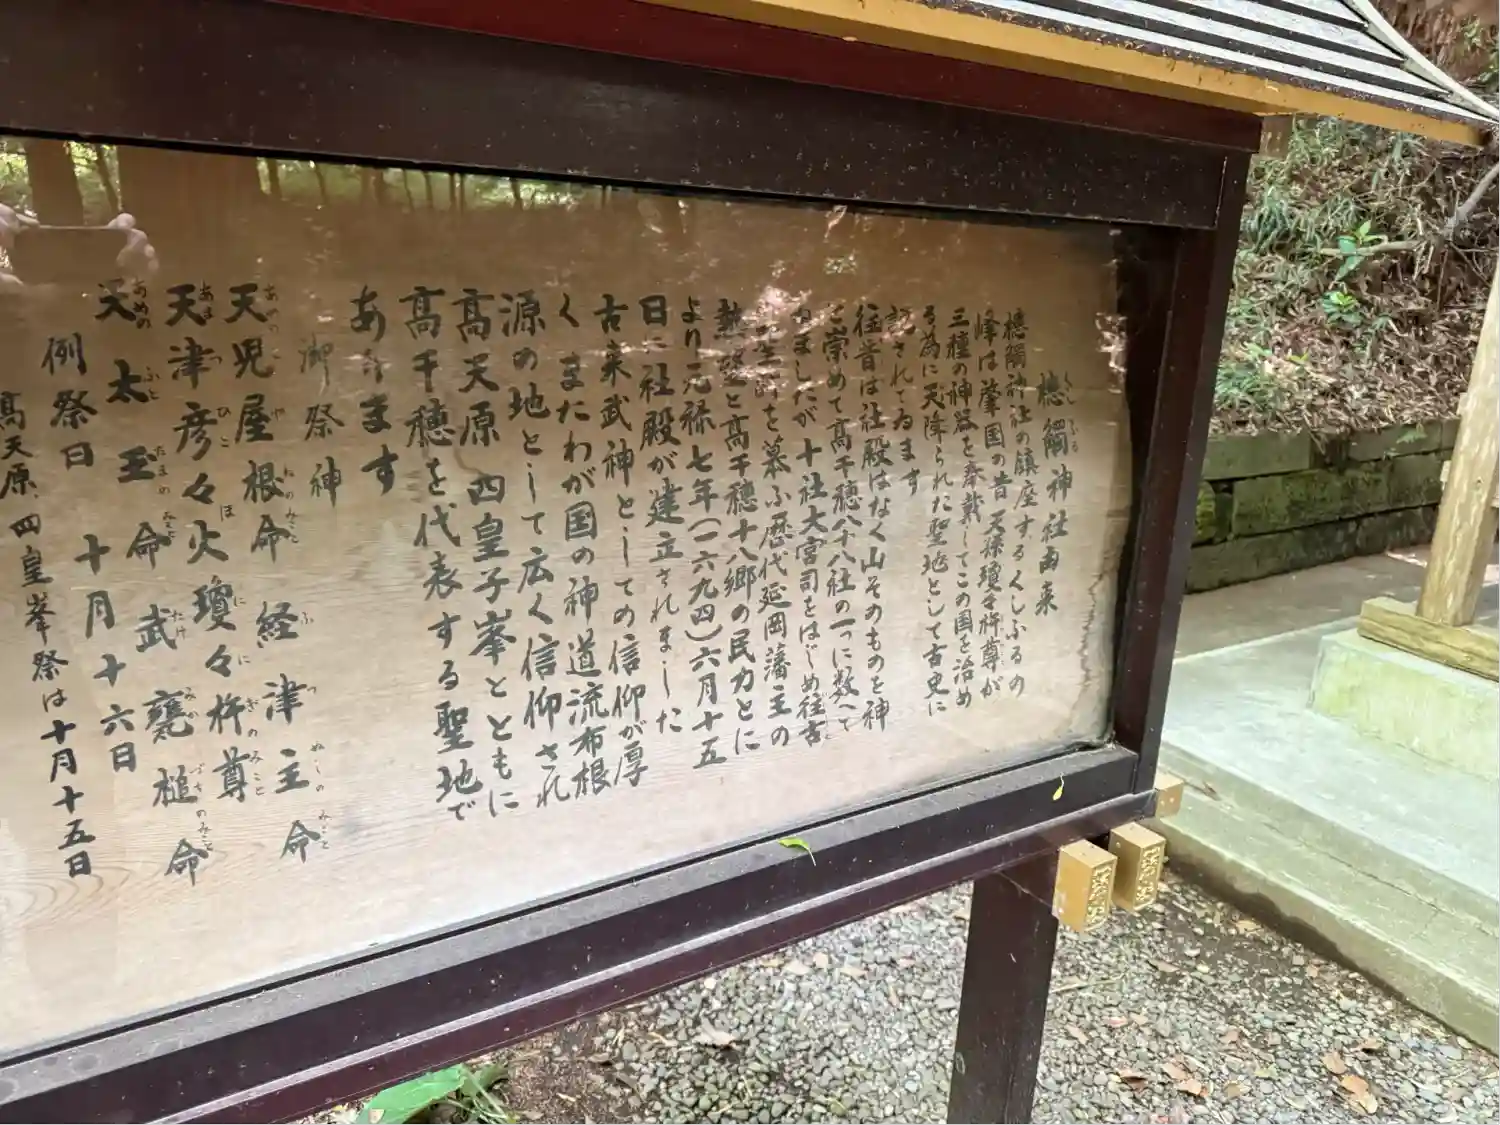 槵觸神社由来
くしふる
槵觸神社の鎮座するくしふるの
峰は肇国の昔 天孫瓊々杵尊が
三種の神器を奉戴してこの国を治め
る為に天降られた聖地として古史に
記されてゐます
往昔は社殿はなく山そのものを神
と崇めて高千穂八十八社の一つに数へて
ゐましたが 十社大宮司をはじめ往古
を慕ふ歴代延岡藩主の
熱望と高千穂十八郷の民力とに
より元禄七年(一六九四)六月十五
日に社殿が建立されました
古来武神としての信仰が厚
くまたわが国の神道流布根
源の地として広く信仰され
高天原 四皇子峯とともに
高千穂を代表する聖地で
あります
御祭神
天児屋根命 経津主命
あめの や ねのみこと ふ つ ぬしの みこと
天津彦々火瓊々杵尊
あま つ ひこ ほ に に ぎのみこと
天太玉命 武甕槌命
あめの ふと たまの みこと たけ みか づちのみこと
例祭日 十月十六日
高天原、四皇峯祭は十月十五日